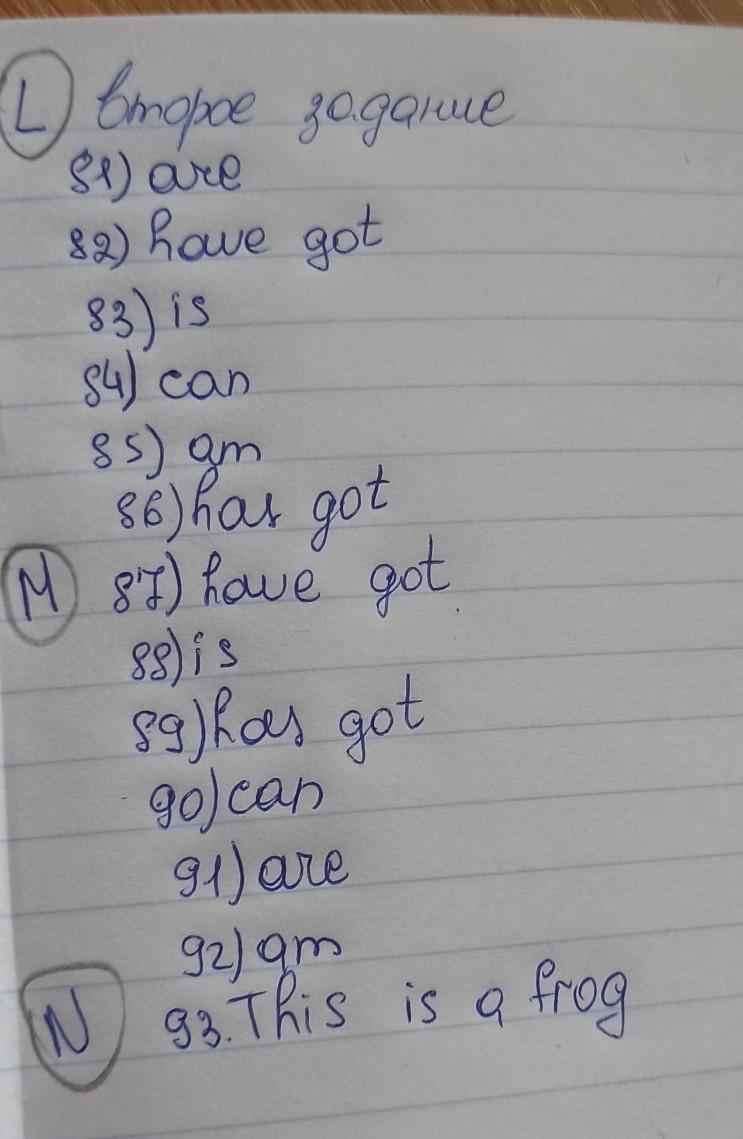 L второе задание
81) are
82) have got
83) is
84) can
85) am
86) has got
M 87) have got
88) is
89) has got
90) can
91) are
92) am
N 93. This is a frog